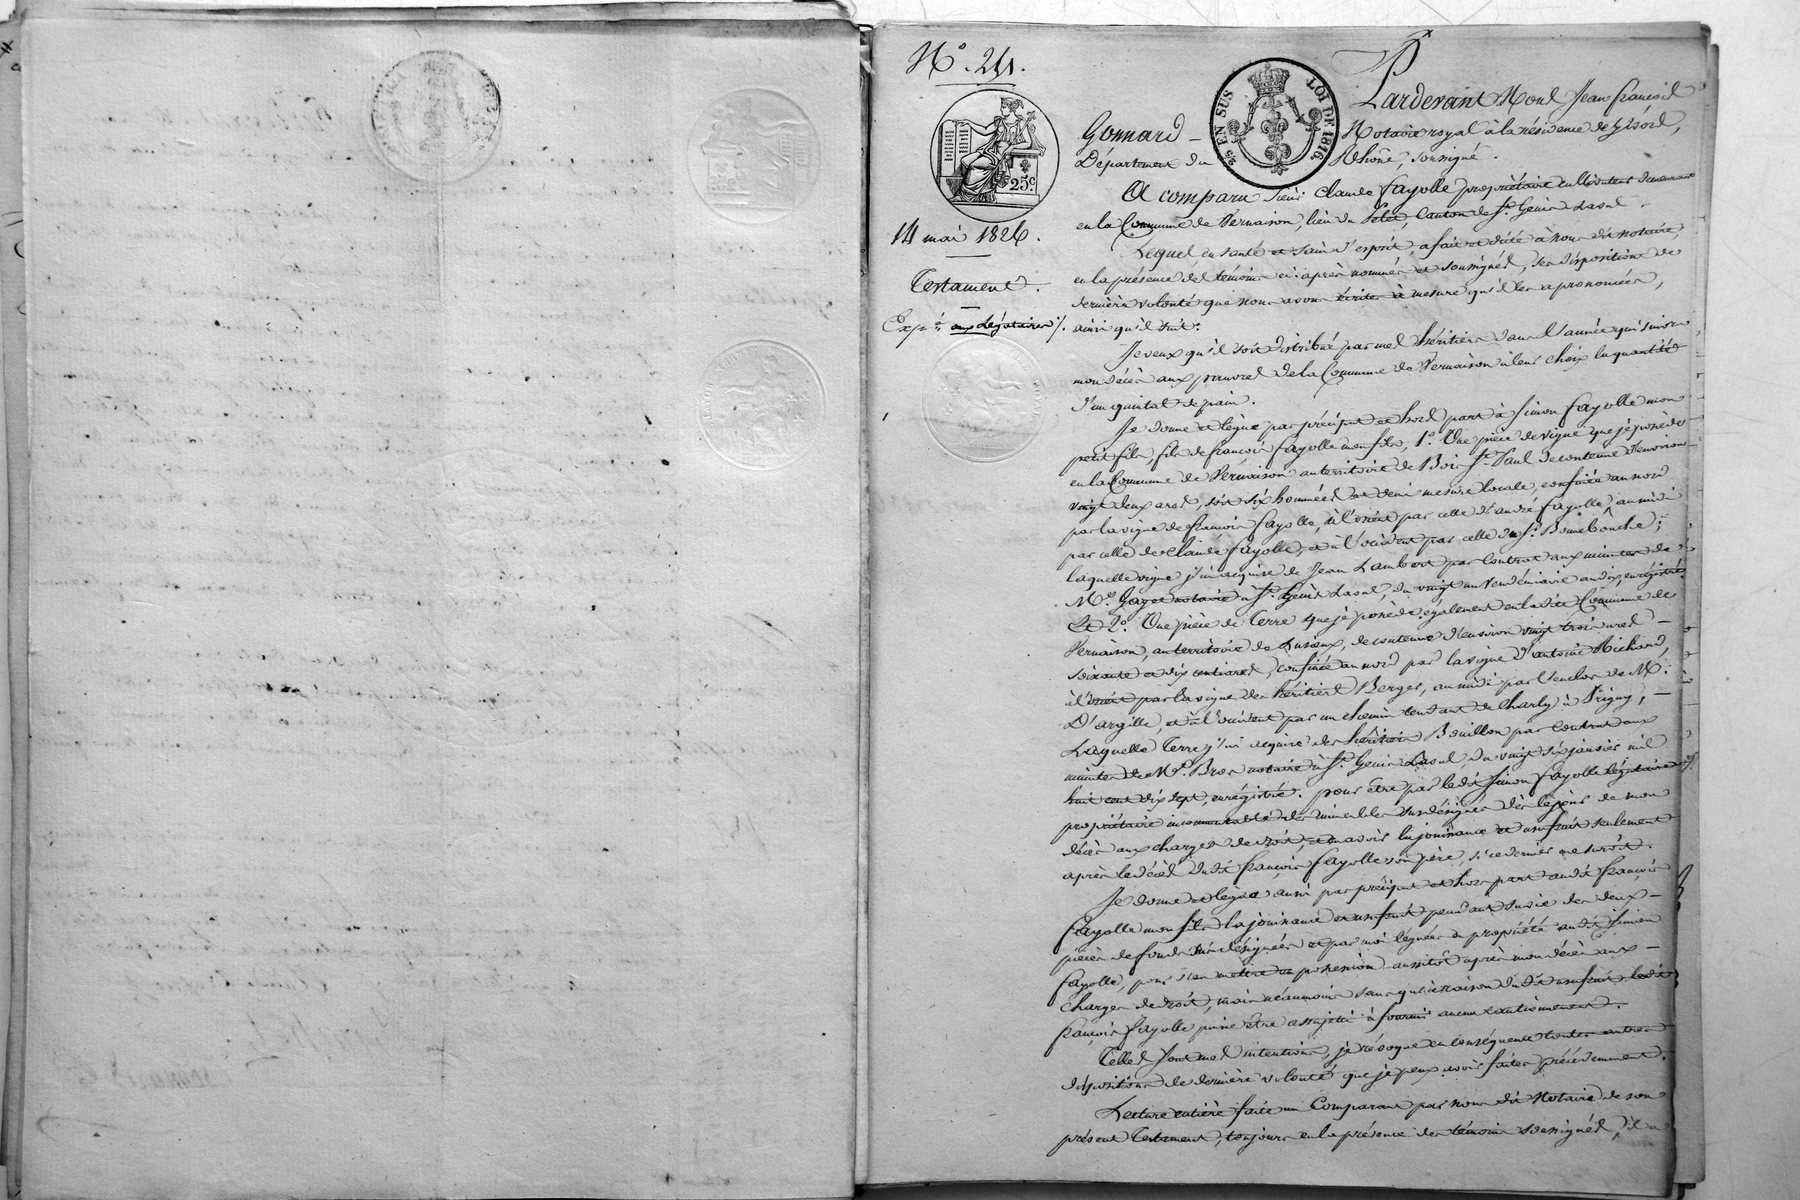 N.° 241.
25 EN SUS LOI DE 1816.
25.c
14 mai 1826.
Testament.
Exp.é aux Légataires /.
Pardevant Nous Jean françois
Gonnard — Notaire royal à la résidence de Givors,
Département du Rhône, soussigné.
A comparu Sieur Claude Fayolle propriétaire cultivateur demeurant
en la Commune de Vernaison, lieu du Canton de St. Genis Laval.
Lequel, en santé et sain d'esprit, a fait et dicté à nous dit notaire,
en la présence des témoins ci-après nommés et soussignés, ses dispositions de
dernière volonté que nous avons écrites à mesure qu'il les a prononcées,
ainsi qu'il suit:
Je veux qu'il soit distribué par mes héritiers dans l'année qui suivra
mon décès aux pauvres de la Commune de Vernaison à leur choix la quantité
d'un quintal de pain.
Je donne et lègue par préciput et hors part à Simon Fayolle mon
petit fils, fils de françois Fayolle mon fils, 1.° Une pièce de vigne que je possède
en la Commune de Vernaison au territoire de Bois St. Paul de contenue d'environ
vingt deux ares, soit six hommées et demi mesure locale, confinée au nord
par la vigne de françois Fayolle, à l'orient par celle d'andré Fayolle, au midi
par celle de Claude Fayolle, et à l'occident par celle du Sr. Bonnebouche;
laquelle vigne j'ai acquise de Jean Lambert par Contrat aux minutes de
Me. Gayet notaire à St. Genis Laval, du vingt un Vendémiaire an dix, enrégistré.
Et 2.° Une pièce de Terre que je possède également en ladite Commune de
Vernaison, au territoire de de contenue d'environ vingt trois ares —
soixante et dix centiares, confinée au nord par la vigne d'antoine Richard,
à l'orient par la vigne des héritiers Berger, au midi par l'enclos de M.
D'argille, et à l'occident par un chemin tendant de Charly à Irigny, —
Laquelle Terre j'ai acquise des héritiers Bouillon par Contrat aux
minutes de Me. Bros notaire à St. Genis Laval, du vingt six janvier mil
huit cent dix sept, enrégistré. pour être par ledit Simon Fayolle légataire
propriétaire incommutable des immeubles susdésignés dès le jour de mon
décès aux charges de droit, et en avoir la jouissance et usufruit seulement
après le décès dudit françois Fayolle son père, si ce dernier me survit.
Je donne et lègue aussi par préciput et hors part audit françois
Fayolle mon fils la jouissance et usufruit pendant sa vie des deux —
pièces de fonds sus désignées et par moi léguées en propriété audit Simon
Fayolle, pour s'en mettre en possession aussitôt après mon décès aux —
Charges de droit, mais néanmoins sans qu'à raison dudit usufruit ledit
françois Fayolle puisse être assujetti à fournir aucun cautionnement.
Telles sont mes intentions, je révoque en conséquence toutes autres
dispositions de dernière volonté que je peux avoir faites précédemment.
Lecture entière faite au Comparant par nous dit Notaire de son
présent Testament, toujours en la présence des témoins soussignés, il a